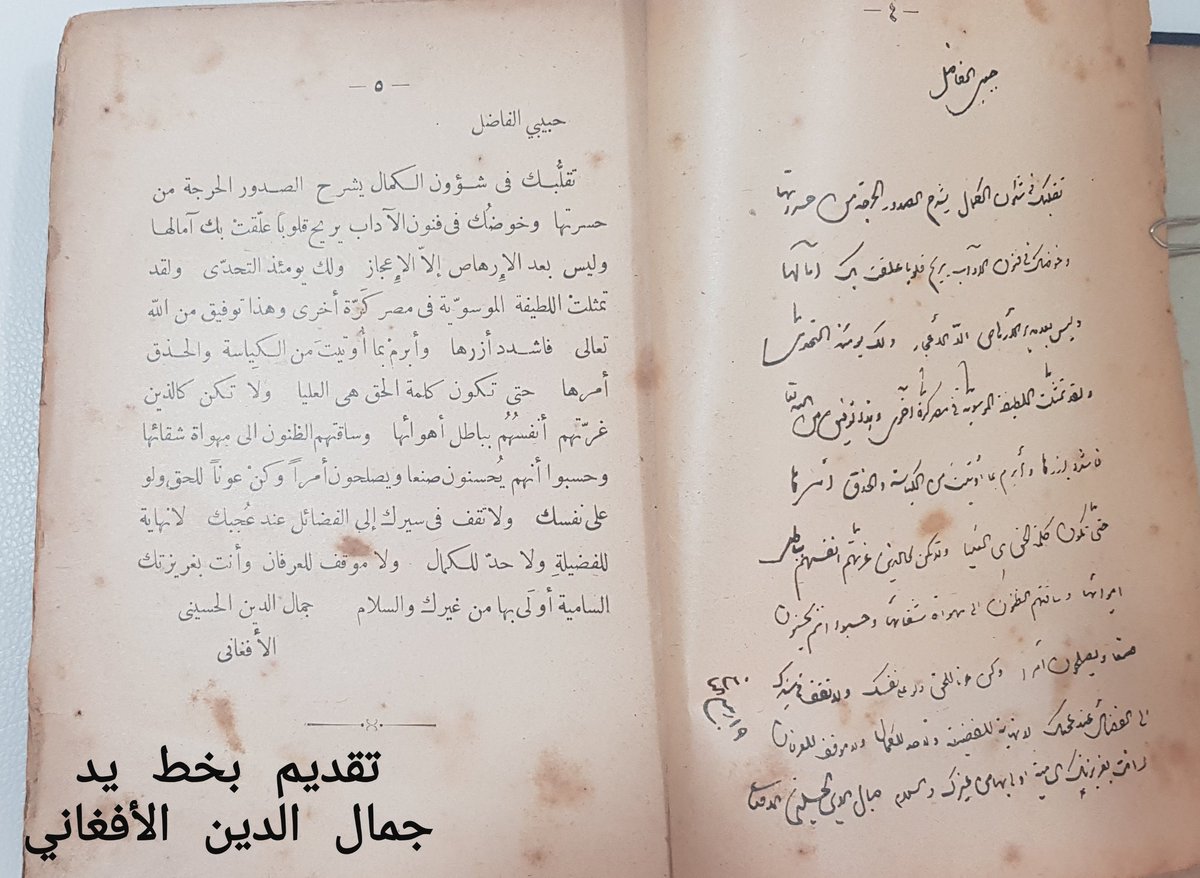 — ٤ —
حبيبي الفاضل
تقلبك في شؤن الكمال يشرح الصدور الحرجة من حسرتها
وخوضك في فنون الآداب يريح قلوبا علقت بك آمالها
وليس بعد الارهاص الا الاعجاز ولك يومئذ التحدي
ولقد تمثلت اللطيفة الموسوية في مصر كرة اخرى وهذا توفيق من الله تعالى
فاشدد ازرها وأبرم بما أوتيت من الكياسة والحذق أمرها
حتى تكون كلمة الحق هي العليا ولا تكن كالذين غرتهم انفسهم بباطل
اهوائها وساقتهم الظنون الى مهواة شقائها وحسبوا انهم يحسنون
صنعا ويصلحون أمرا وكن عونا للحق ولو على نفسك ولا تقف في سيرك
الى الفضائل عند عجبك لا نهاية للفضيلة ولا حد للكمال ولا موقف للعرفان
وانت بغريزتك السامية اولى بها من غيرك والسلام جمال الدين الحسيني الافغاني
— ٥ —
حبيبي الفاضل
تقلُّبك فى شؤون الكمال يشرح الصدور الحرجة من
حسرتها وخوضُك فى فنون الآداب يريح قلوباً علّقتْ بك آمالها
وليس بعد الإرهاص إلاّ الإعجاز ولك يومئذ التحدّى ولقد
تمثلتْ اللطيفة الموسويّة فى مصر كَرّة أخرى وهذا توفيق من الله
تعالى فاشدد أزرها وأبرمْ بما أُوتيت من الكِياسة والحذق
أمرها حتى تكون كلمة الحق هى العليا ولا تكن كالذين
غرّتهم أنفسُهُم بباطل أهوائها وساقتهم الظنون الى مهواة شقائها
وحسبوا أنهم يُحسنون صنعا ويصلحون أمراً وكنْ عوناً للحق ولو
على نفسك ولا تقف فى سيرك إلى الفضائل عند عُجبك لا نهاية
للفضيلةِ ولا حدّ للكمال ولا موقف للعرفان وأنت بغريزتك
السامية أولَى بها من غيرك والسلام جمال الدين الحسينى
الأفغانى
تقديم بخط يد
جمال الدين الأفغاني